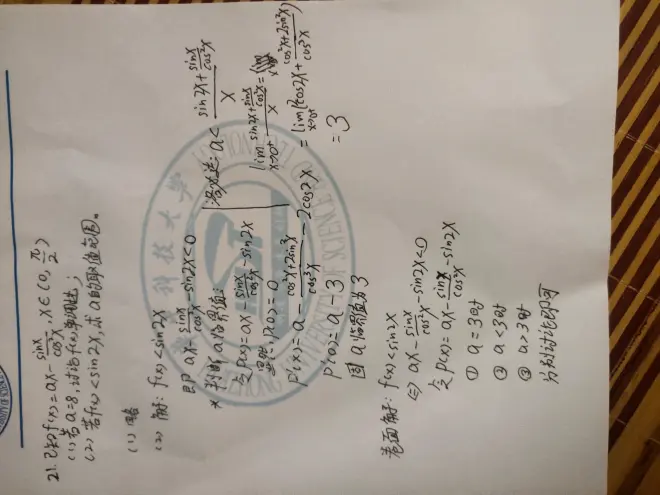 21. 已知 f(x) = ax - sinx/cos³x, x∈(0, π/2)
(1) 若 a=8, 讨论 f(x) 单调性;
(2) 若 f(x) < sin2x, 求 a 的取值范围。
(1) 略
(2) 解: f(x) < sin2x
即 ax - sinx/cos³x - sin2x < 0
* 判断 a 临界值:
令 p(x) = ax - sinx/cos³x - sin2x
显然: p(0) = 0
p'(x) = a - (cos²x+2sin²x)/cos³x - 2cos2x
p'(0) = a - 3
因 a 临界值为 3
洛必达: a < (sin2x + sinx/cos²x)/x
lim x→0+ (sin2x + sinx/cos²x)/x = lim x
(cos²x+2sin²x)/cos³x)
= lim x→0+ (2cos2x +
= 3
卷面解: f(x) < sin2x
⇔ ax - sinx/cos²x - sin2x < 0
令 p(x) = ax - sinx/cos²x - sin2x
① a = 3时
② a < 3时
③ a > 3时
分别讨论即可
科技大学
UNIVERSITY OF SCIENCE AND